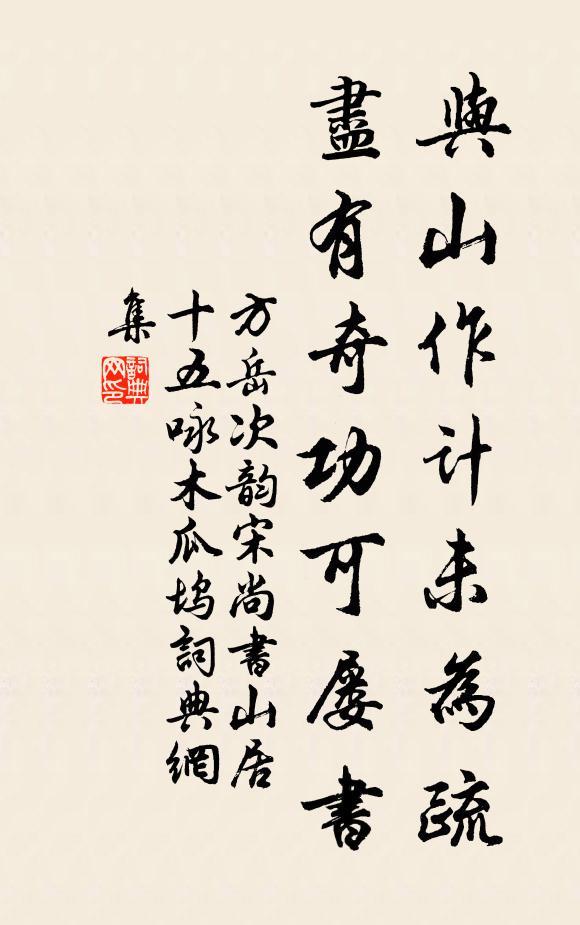 與山作計未為疏
盡有奇功可屡書
方岳次韵宋尚書山居
十五咏木瓜坞詞典網
集
詞典
网印